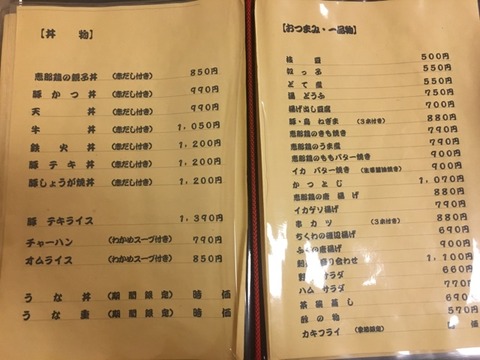 【丼 物】
恵那鶏の親子丼 (赤だし付き) 850円
豚かつ丼 (赤だし付き) 990円
天丼 (赤だし付き) 990円
牛丼 (赤だし付き) 1,050円
鉄火丼 (赤だし付き) 1,200円
豚テキ丼 (赤だし付き) 1,200円
豚しょうが焼丼 (赤だし付き) 1,200円
豚テキライス 1,390円
チャーハン (わかめスープ付き) 790円
オムライス (わかめスープ付き) 850円
うな丼 (期間限定) 時価
うな重 (期間限定) 時価
【おつまみ・一品物】
枝豆 500円
冷っ子 550円
どて煮 550円
湯どうふ 750円
揚げ出し豆腐 700円
豚・鳥 ねぎま (3本付き) 880円
恵那鶏のきも焼き 790円
恵那鶏のうま煮 790円
恵那鶏のももバター焼き
イカ バター焼き
かつとじ 1,070円
恵那鶏の唐揚げ 880円
イカゲソ揚げ 790円
串カツ (3本付き) 880円
ちくわの磯辺揚げ
ふぐの唐揚げ 900円
盛り合わせ 1,100円
サラダ 660円
ハム サラダ 770円
茶碗蒸し 690円
酢の物 570円
カキフライ 時価